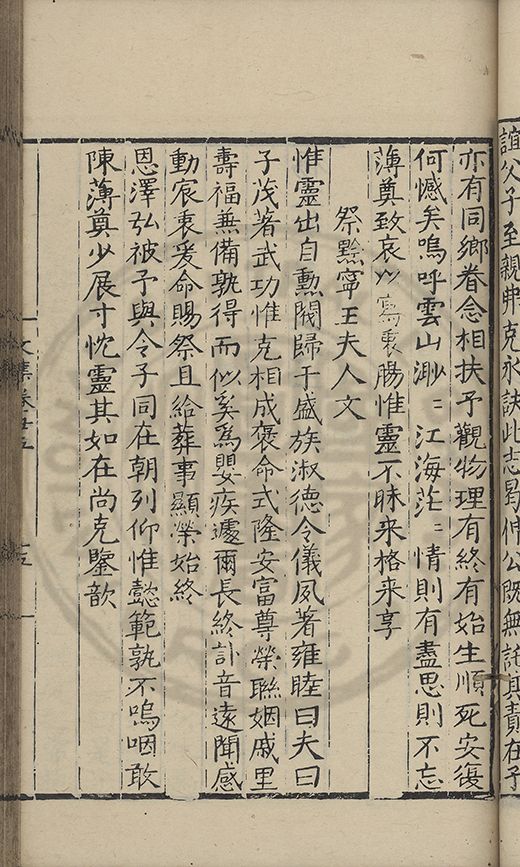 誼父子至親弗克永訣此志曷伸公旣無託其責在予
亦有同鄉眷念相扶予觀物理有終有始生順死安復
何憾矣嗚呼雲山渺〻江海茫〻情則有盡思則不忘
薄奠致哀以寫衷腸惟靈不昧来格来享
祭黔寧王夫人文
惟靈出自勲閥歸于盛族淑德令儀夙著雍睦曰夫曰
子茂著武功惟克相成褒命式隆安富尊榮聯姻戚里
壽福兼備孰得而似奚爲嬰疾遽爾長終訃音遠聞感
動宸衷爰命賜祭且給葬事顯榮始終
恩澤弘被予與令子同在朝列仰惟懿範孰不嗚咽敢
陳薄奠少展寸忱靈其如在尚克鑒歆
文集卷廿五